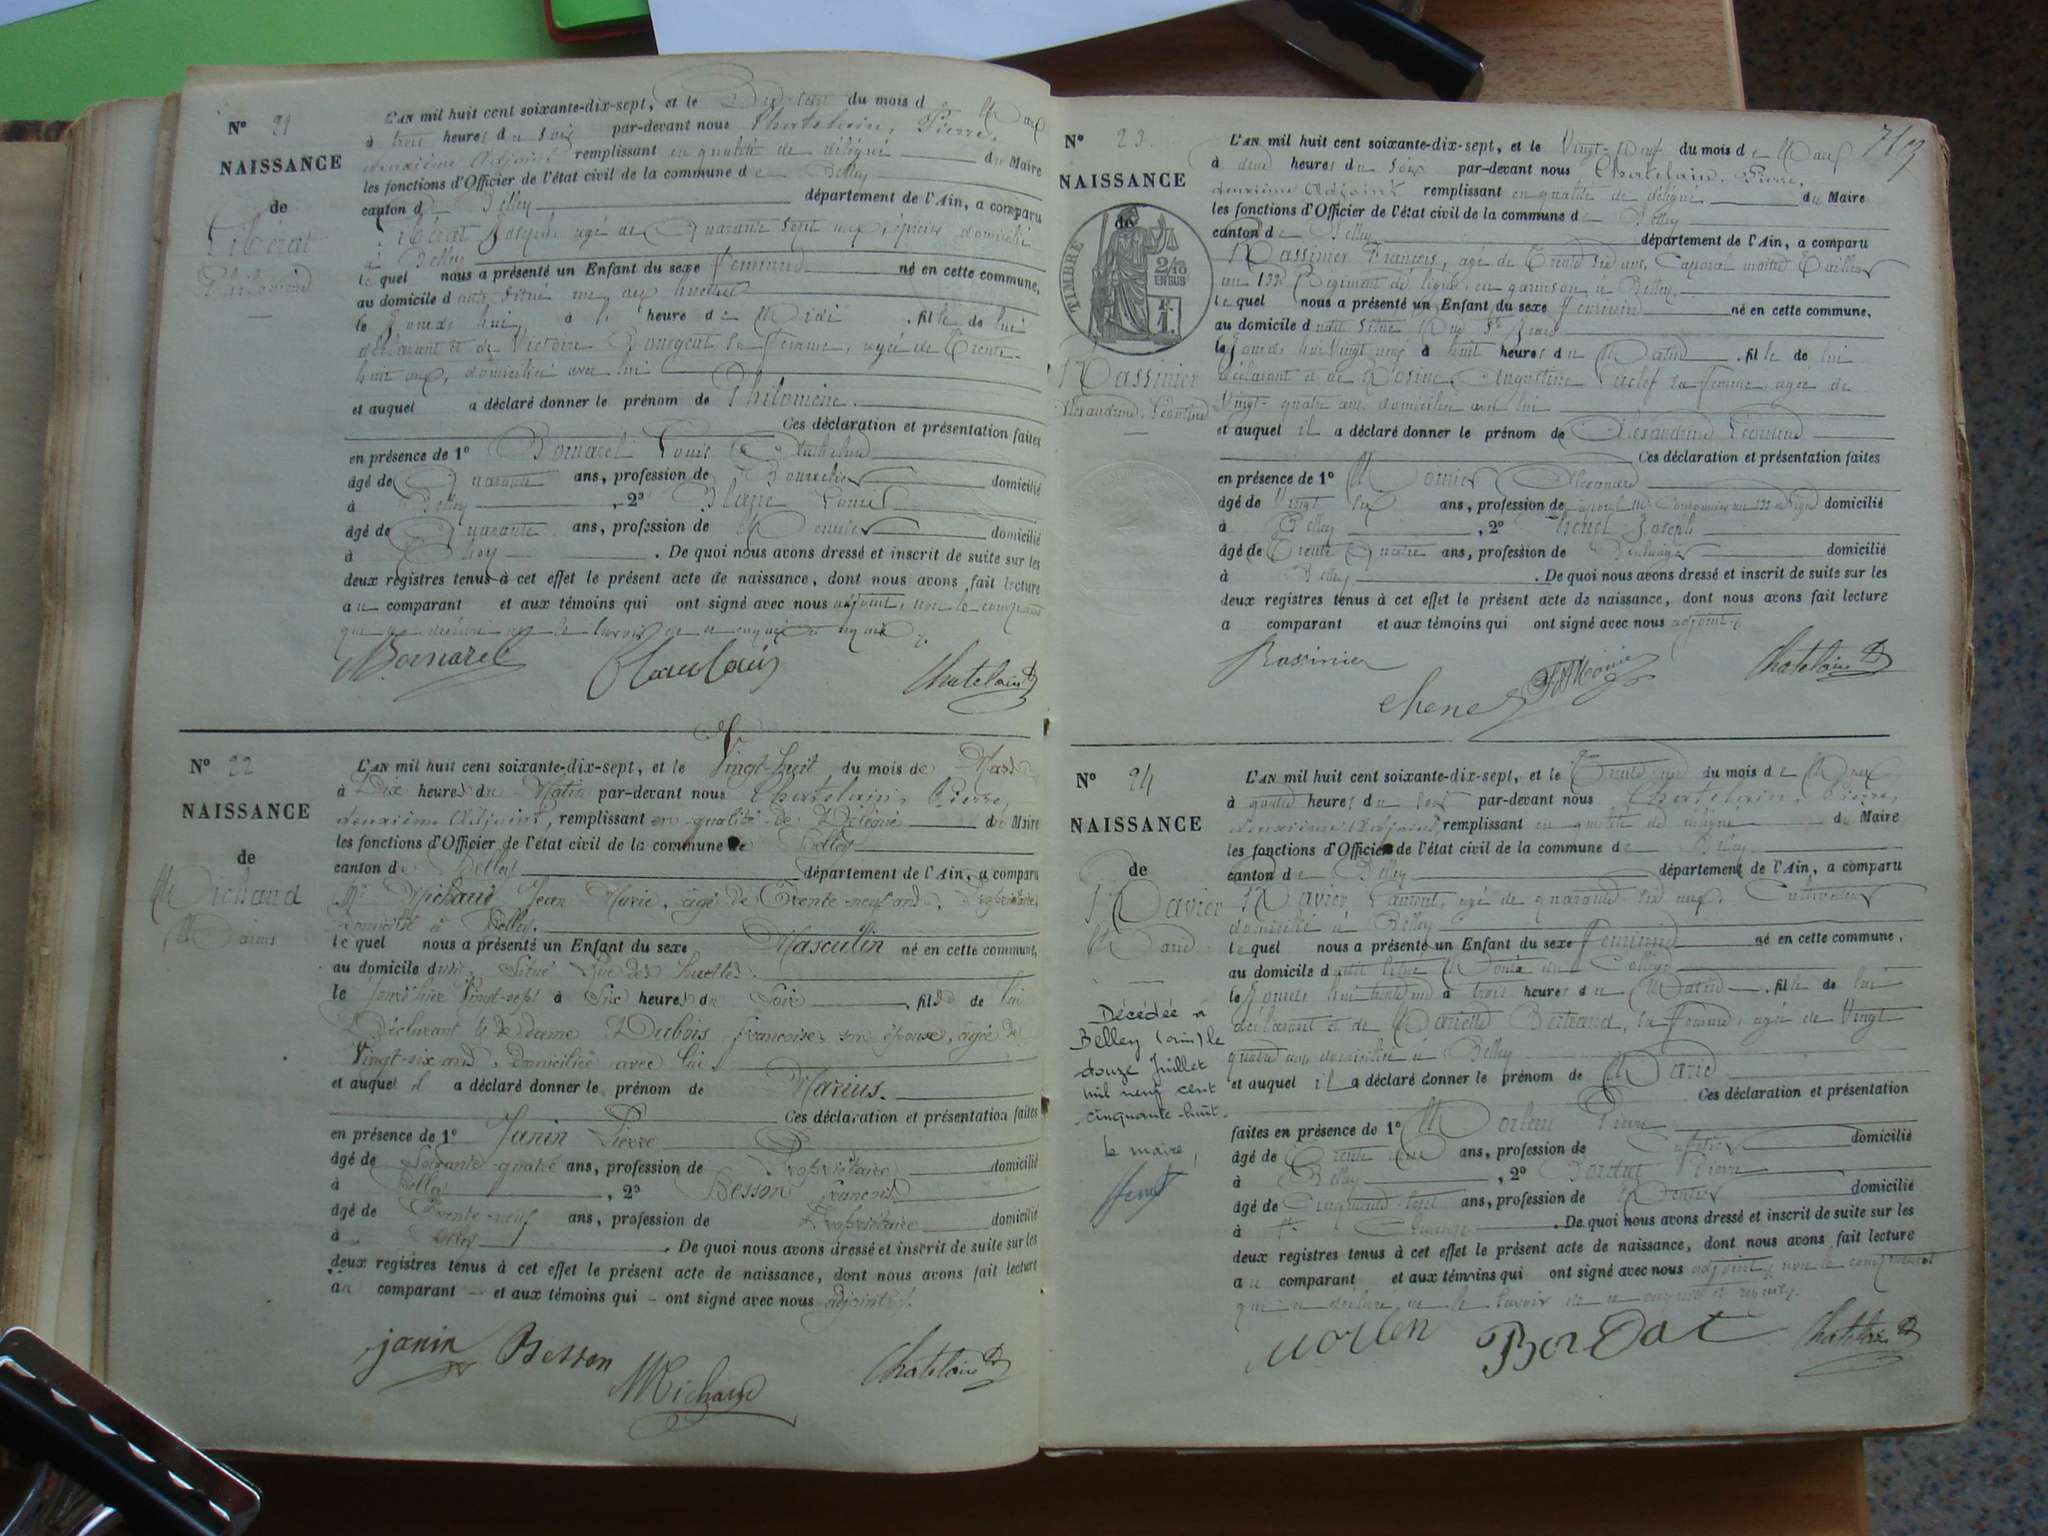 N° 21
NAISSANCE
de
Liberat
Philomène
L'AN mil huit cent soixante-dix-sept, et le Dix-sept du mois de Mars
à trois heures du soir par-devant nous Chatelain, Pierre,
deuxième Adjoint remplissant en qualité de délégué du Maire
les fonctions d'Officier de l'état civil de la commune de Belley
canton de Belley département de l'Ain, a comparu
Liberat Joseph, agé de Quarante sept ans, domicilié
à Belley
le quel nous a présenté un Enfant du sexe féminin né en cette commune,
au domicile d situé rue des
le Jourd'hui à heure de Midi . fille de lui
déclarant et de Victoire sa femme, agée de trente-
huit ans, domiciliée avec lui
et auquel a déclaré donner le prénom de Philomène.
Ces déclaration et présentation faites
en présence de 1° Bornarel Louis
âgé de Quarante ans, profession de Bourrelier domicilié
à Belley , 2° Louis
âgé de Quarante ans, profession de domicilié
à . De quoi nous avons dressé et inscrit de suite sur les
deux registres tenus à cet effet le présent acte de naissance, dont nous avons fait lecture
au comparant et aux témoins qui ont signé avec nous adjoint, non le comparant
qui a déclaré ne le savoir de ce enquis et requis.
Bornarel Chatelain
N° 22
NAISSANCE
de
Michaud
Marius
L'AN mil huit cent soixante-dix-sept, et le Vingt-huit du mois de Mars
à Dix heures du Matin par-devant nous Chatelain, Pierre,
deuxième Adjoint, remplissant en qualité de Délégué du Maire
les fonctions d'Officier de l'état civil de la commune de Belley
canton de Belley département de l'Ain, a comparu
Mr Michaud Jean Marie, âgé de Trente-neuf ans, Propriétaire,
domicilié à Belley.
le quel nous a présenté un Enfant du sexe Masculin né en cette commune,
au domicile dudit, Situé Rue des
le jour d'hier Vingt-sept à Six heures du Soir , fils de lui
Déclarant & de dame Dubois françoise, son épouse, âgée de
Vingt-six ans, domiciliée avec lui
et auquel il a déclaré donner le prénom de Marius.
Ces déclaration et présentation faites
en présence de 1° Janin Pierre
âgé de Soixante-quatre ans, profession de Propriétaire domicilié
à Belley , 2° Besson François
âgé de Trente-neuf ans, profession de Propriétaire domicilié
à Belley . De quoi nous avons dressé et inscrit de suite sur les
deux registres tenus à cet effet le présent acte de naissance, dont nous avons fait lecture
au comparant et aux témoins qui ont signé avec nous adjoint.
janin Besson Michaud Chatelain
N° 23.
NAISSANCE
de
TIMBRE
2/10
EN SUS
Rassinier
Alexandrine, Léontine
L'AN mil huit cent soixante-dix-sept, et le Vingt-neuf du mois de Mars
à deux heures du soir par-devant nous Chatelain, Pierre,
deuxième Adjoint remplissant en qualité de délégué du Maire
les fonctions d'Officier de l'état civil de la commune de Belley
canton de Belley département de l'Ain, a comparu
Rassinier François, agé de Trente ans, Caporal maître Tailleur
au 133e Régiment de ligne, en garnison à Belley,
le quel nous a présenté un Enfant du sexe féminin né en cette commune,
au domicile dudit situé Rue St Jean
le Jourd'hui Vingt neuf à huit heures du Matin . fille de lui
déclarant et de Rosine Augustine sa femme, agée de
Vingt-quatre ans domiciliée avec lui
et auquel il a déclaré donner le prénom de Alexandrine Léontine
Ces déclaration et présentation faites
en présence de 1° Monier Alexandre
âgé de Vingt six ans, profession de Caporal domicilié
à Belley , 2° Chenet Joseph
âgé de Trente Quatre ans, profession de domicilié
à Belley . De quoi nous avons dressé et inscrit de suite sur les
deux registres tenus à cet effet le présent acte de naissance, dont nous avons fait lecture
a comparant et aux témoins qui ont signé avec nous adjoint.
Rassinier Chenet Chatelain
N° 24
NAISSANCE
de
Ravier
Marie
Décédée à
Belley (ain) le
douze Juillet
mil neuf cent
cinquante-huit.
le maire,
L'AN mil huit cent soixante-dix-sept, et le Trente un du mois de Mars
à quatre heures du soir par-devant nous Chatelain, Pierre,
deuxième Adjoint, remplissant en qualité de délégué du Maire
les fonctions d'Officier de l'état civil de la commune de Belley
canton de Belley département de l'Ain, a comparu
Ravier Laurent, agé de quarante ans, Cultivateur
domicilié à Belley
le quel nous a présenté un Enfant du sexe féminin né en cette commune.
au domicile dudit situé Montée du Collège
le Jourd'hui trente un à trois heures du Matin . fille de lui
déclarant et de Mariette Bertrand, sa femme, agée de Vingt
quatre ans, domiciliée à Belley
et auquel il a déclaré donner le prénom de Marie
Ces déclaration et présentation
faites en présence de 1° Morlen Pierre
âgé de Trente ans, profession de domicilié
à Belley , 2° Bordat Pierre
âgé de Cinquante-sept ans, profession de domicilié
à . De quoi nous avons dressé et inscrit de suite sur les
deux registres tenus à cet effet le présent acte de naissance, dont nous avons fait lecture
au comparant et aux témoins qui ont signé avec nous adjoint, non le comparant
qui a déclaré ne le savoir de ce enquis et requis.
Morlen Bordat Chatelain